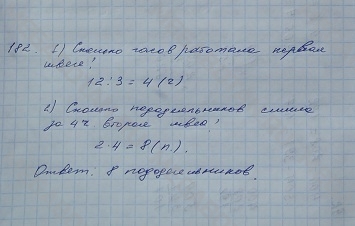 182. 1) Сколько часов работала первая
швея?
12:3=4(ч)
2) Сколько пододеяльников сшила
за 4ч. вторая швея?
2·4=8(п.)
Ответ: 8 пододеяльников.